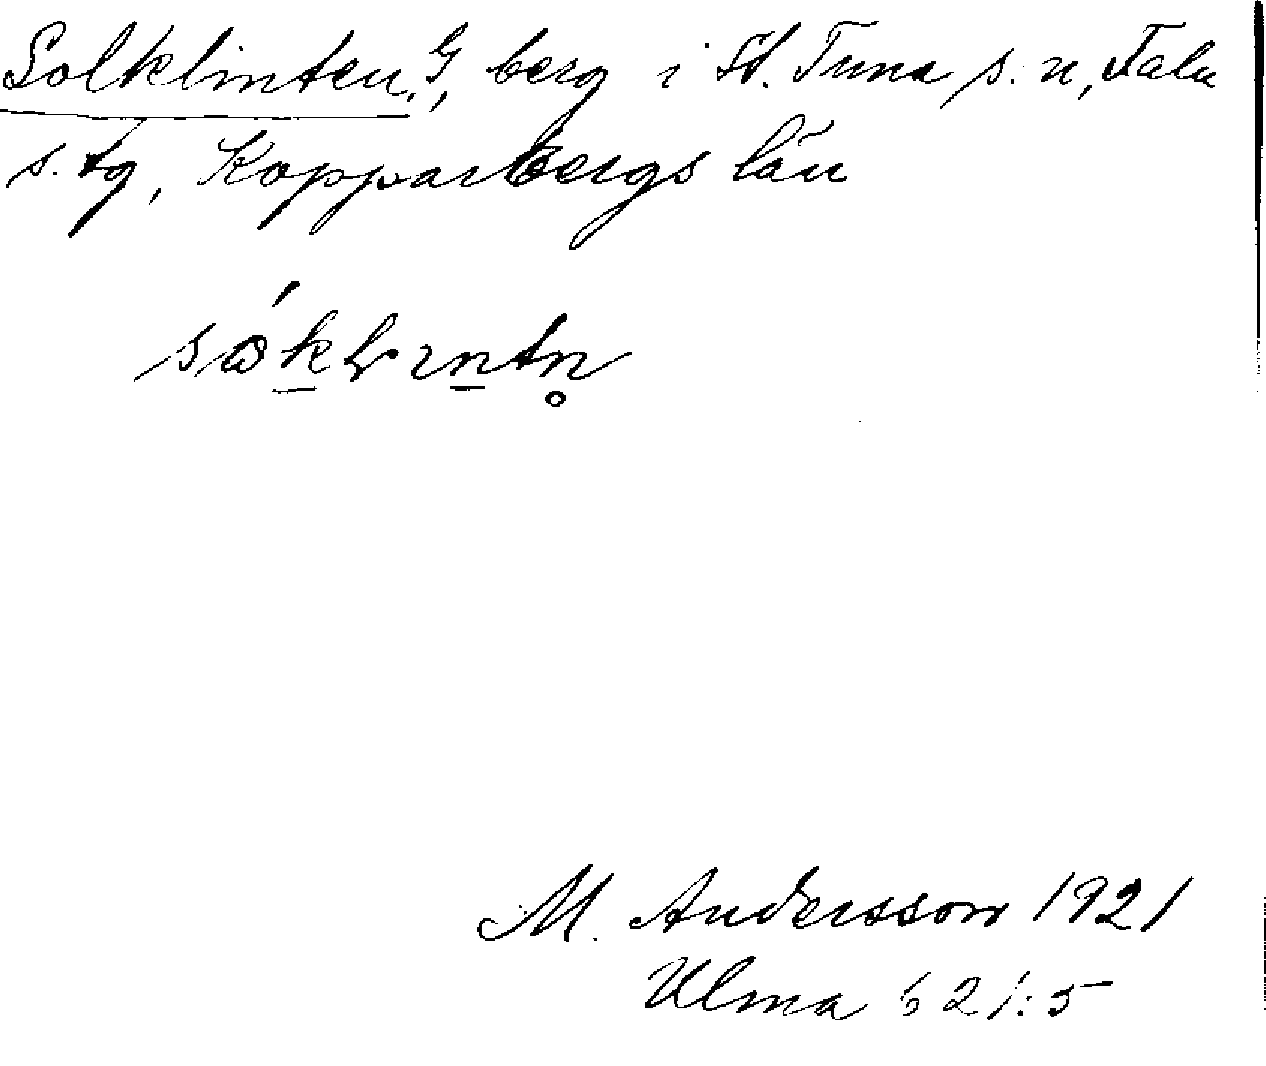 Solklinten, G, berg i St. Tuna s.n, Falu
s. tg, Kopparbergs län
M. Andersson 1921
Ulma 621:5